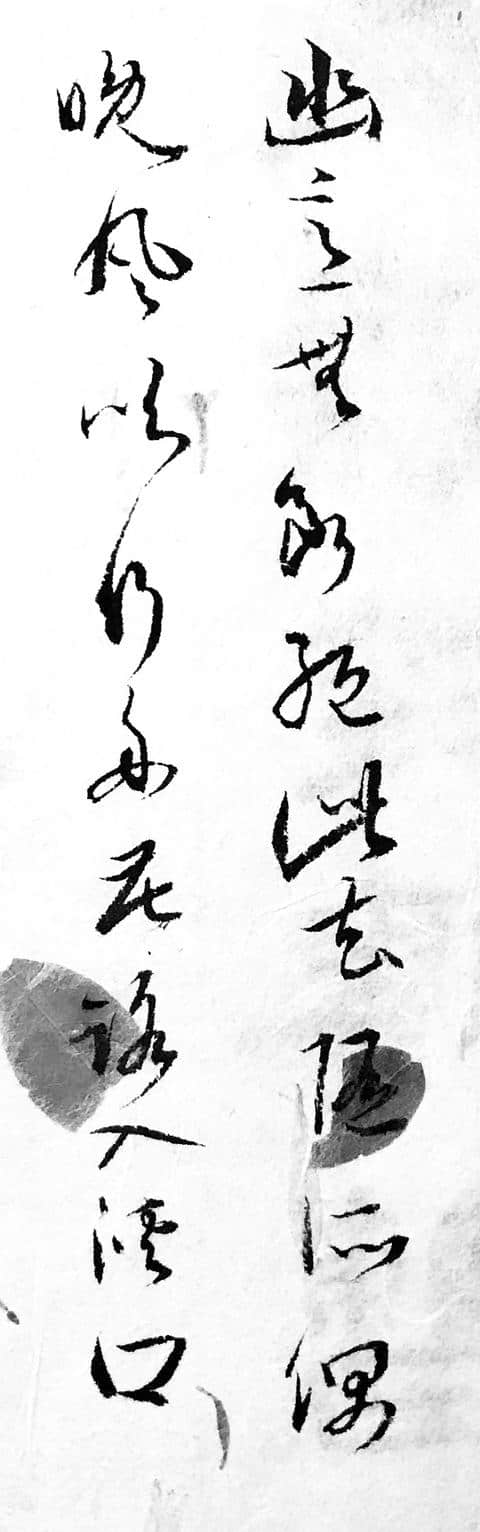 幽意無斷絕此去隨所偶
晚風吹行舟花路入溪口